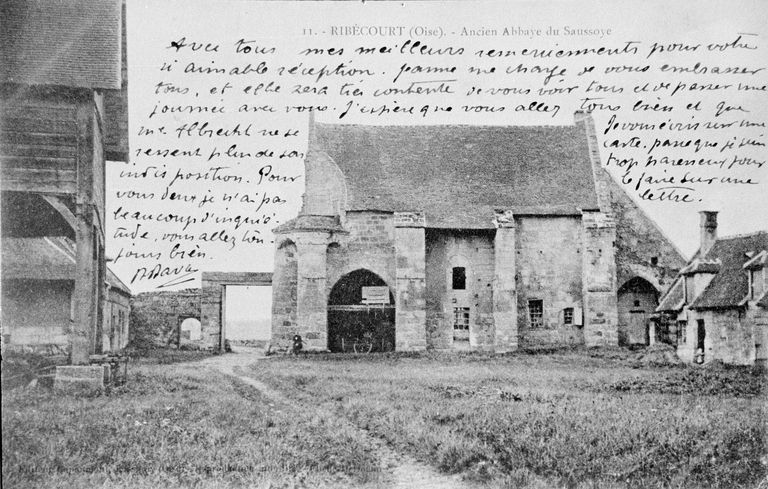 11. - RIBÉCOURT (Oise). - Ancien Abbaye du Saussoye
Avec tous mes meilleurs remerciements pour votre
si aimable réception. me charge de vous embrasser
tous, et elle sera très contente de vous voir tous et de passer une
journée avec vous. J'espère que vous allez tous bien et que
Mr Albrecht ne se
ressent plus de son
indisposition. Pour
vous deux je n'ai pas
beaucoup d'inquié-
tude, vous allez touj.
bien.
Je vous écris sur une
carte, parce que je suis
trop paresseux pour
le faire sur une
lettre.